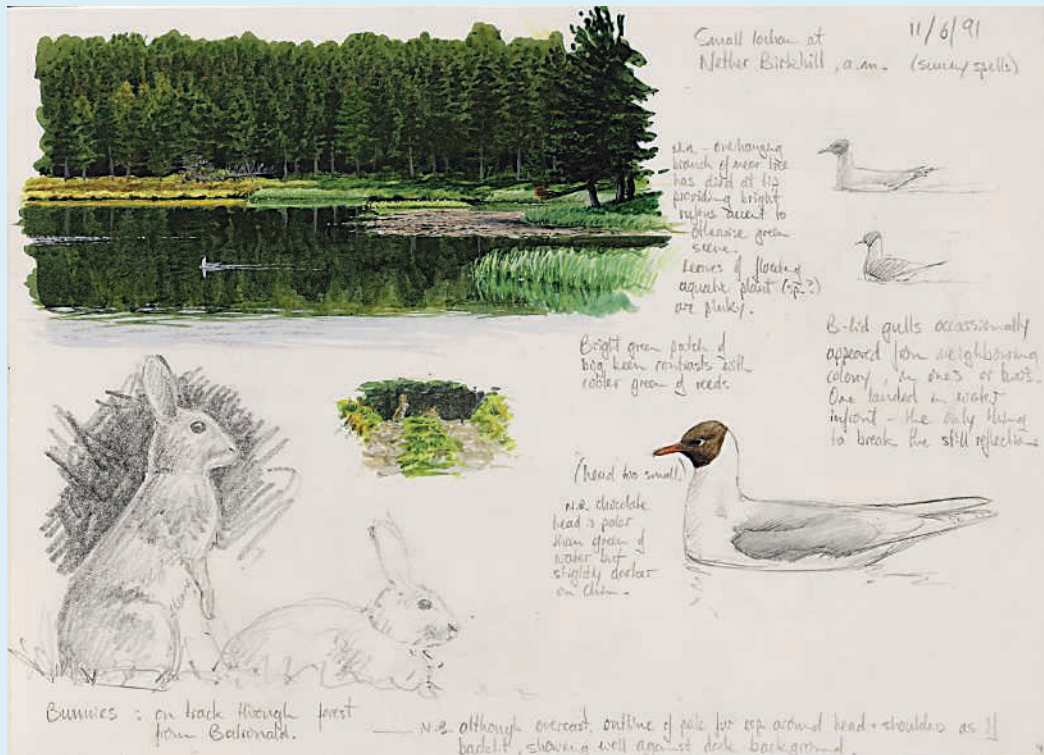 Small lochan at
Nether Birkhill, a.m. (sunny spells)
11/6/91
N.B. - overhanging
branch of near tree
has died at tip
providing bright
rufous accent to
otherwise green
scene.
Leaves of floating
aquatic plant (sp.?)
are pinky.
Bright green patch of
bog been contrasts with
cooler green of reeds
B-hd gulls occassionally
appeared from neighbouring
colony, in ones or twos.
One landed in water
infront - the only thing
to break the still reflections
(head too small)
N.B. chocolate
head is paler
than green of
water but
slightly darker
on chin.
Bunnies : on track through forest
from Balronald.
N.B. although overcast, outline of pale fur esp. around head + shoulders as if
backlit, showing well against dark background.